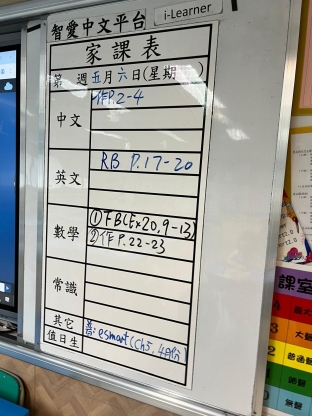 智愛中文平台
i-Learner
家課表
第 週五月六日(星期二)
中文
作P.2-4
英文
RB P.17-20
數學
①FBCEx20.9-13)
②作P.22-23
常識
其它
普: esmart(Ch5, 4月份)
值日生
課室
大聲
普通聲
細聲
無聲